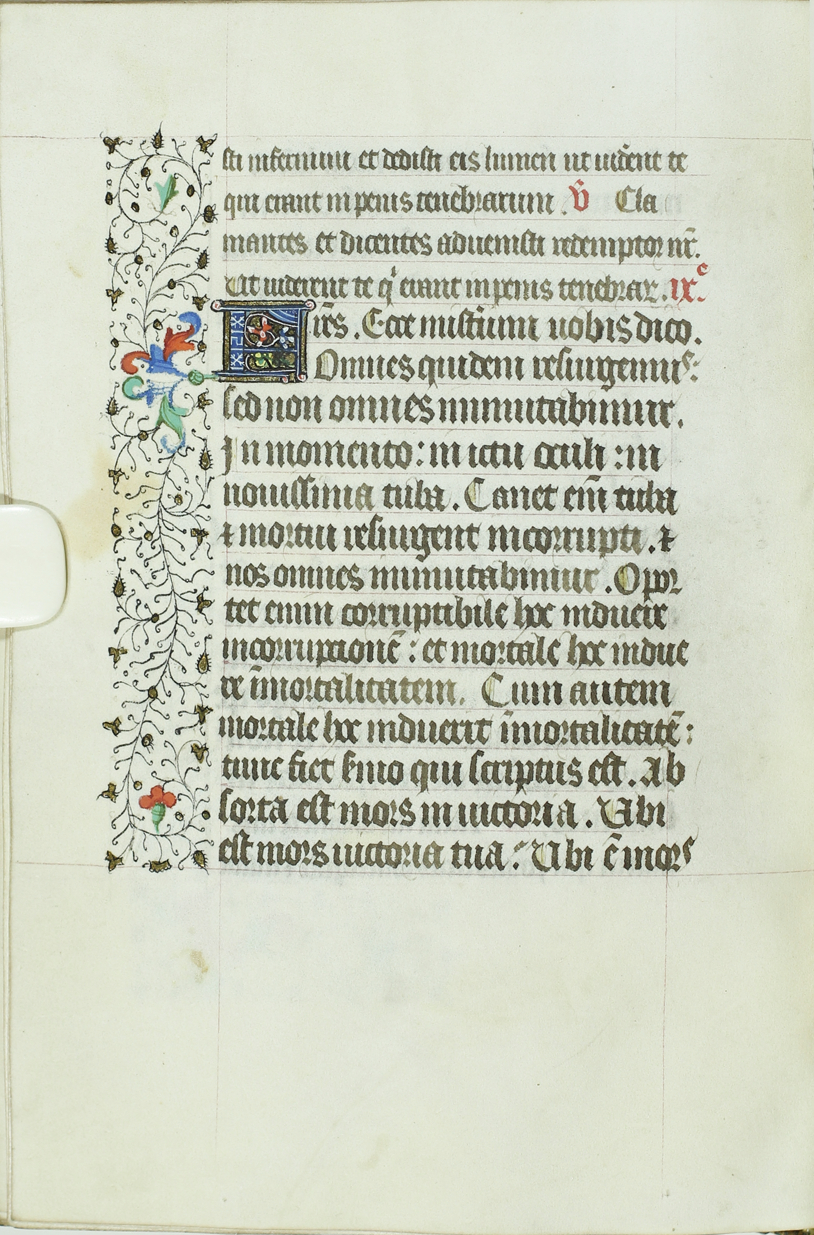 sti infernum et dedisti eis lumen ut uidẽent te
qui erant in penis tenebrarum . v̄ Cla
mantes et dicentes aduenisti redemptor nr̄.
Ut uiderent te qͥ erant in penis tenebrar̄ . ix.ᶜ
Fr̄es . Ecce misteriũm uobis dico.
Omnes quidem resurgemuˢ:
sed non omnes inmutabimur.
In momento : in ictu oculi : in
nouissima tuba . Canet em̄ tuba
⁊ mortui resurgent incorrupti . ⁊
nos omnes inmutabimur . Opor
tet enim corruptibile hoc induere
incorruptionē : et mortale hoc indue
re īmortalitatem . Cum autem
mortale hoc induerit īmortalitatē :
tunc fiet s̄mo qui scriptus est . Ab
sorta est mors in uictoria . Ubi
est mors uictoria tua : Ubi ē mors